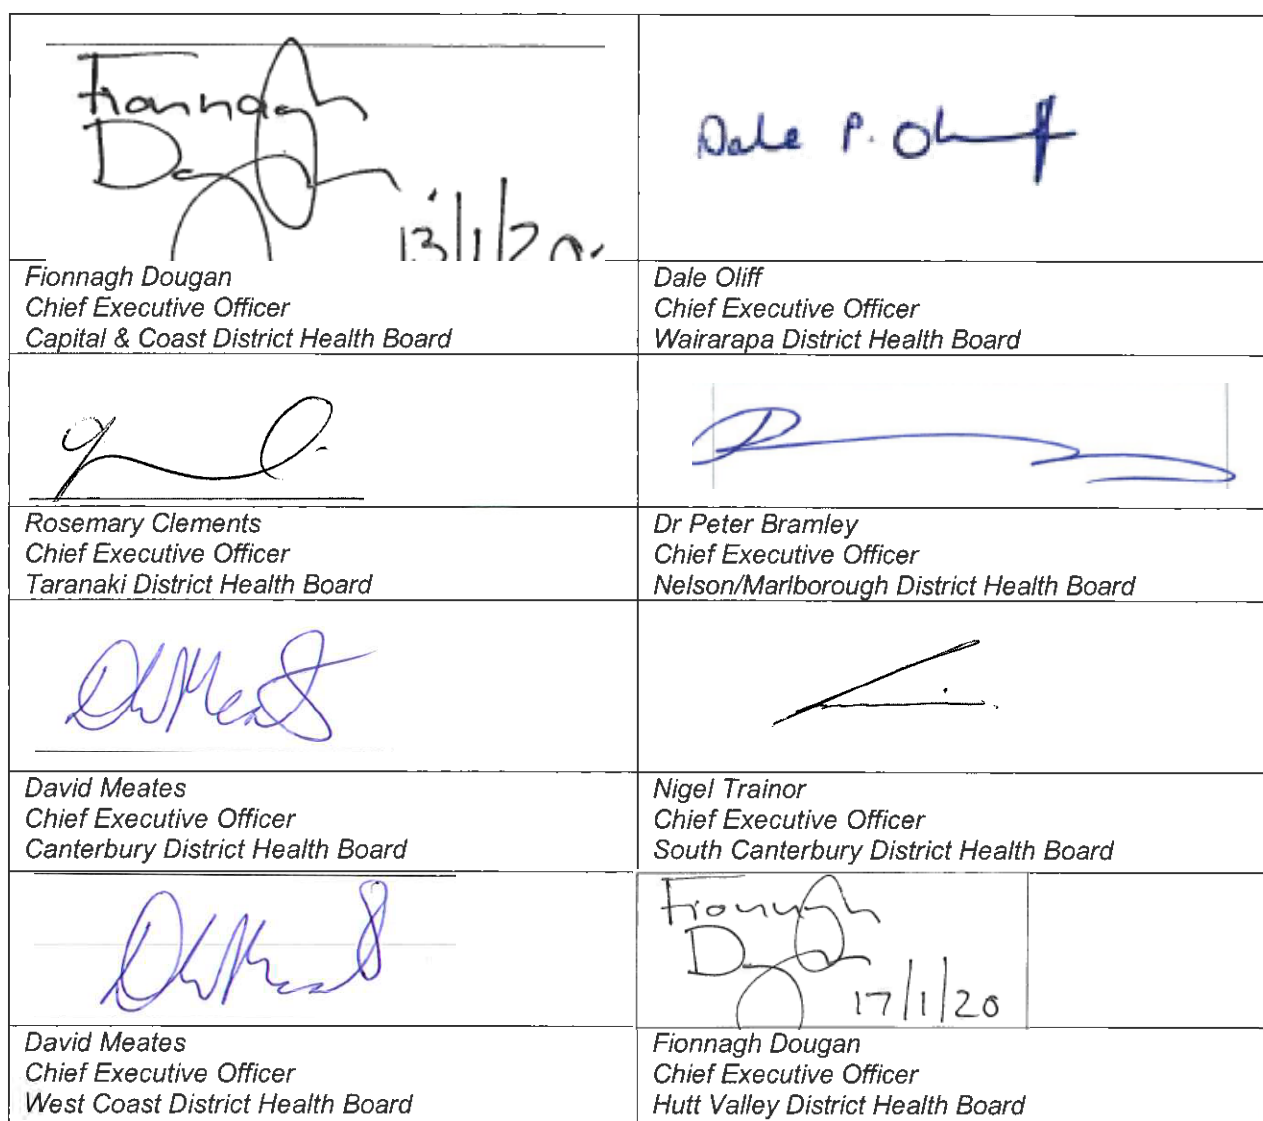 Fionnagh
D
13/1/20
Dale P. Oliff
Fionnagh Dougan
Chief Executive Officer
Capital & Coast District Health Board
Dale Oliff
Chief Executive Officer
Wairarapa District Health Board
Rosemary Clements
Chief Executive Officer
Taranaki District Health Board
Dr Peter Bramley
Chief Executive Officer
Nelson/Marlborough District Health Board
DWMeates
David Meates
Chief Executive Officer
Canterbury District Health Board
Nigel Trainor
Chief Executive Officer
South Canterbury District Health Board
David Meates
Chief Executive Officer
West Coast District Health Board
Fionnagh
D
17/1/20
Fionnagh Dougan
Chief Executive Officer
Hutt Valley District Health Board